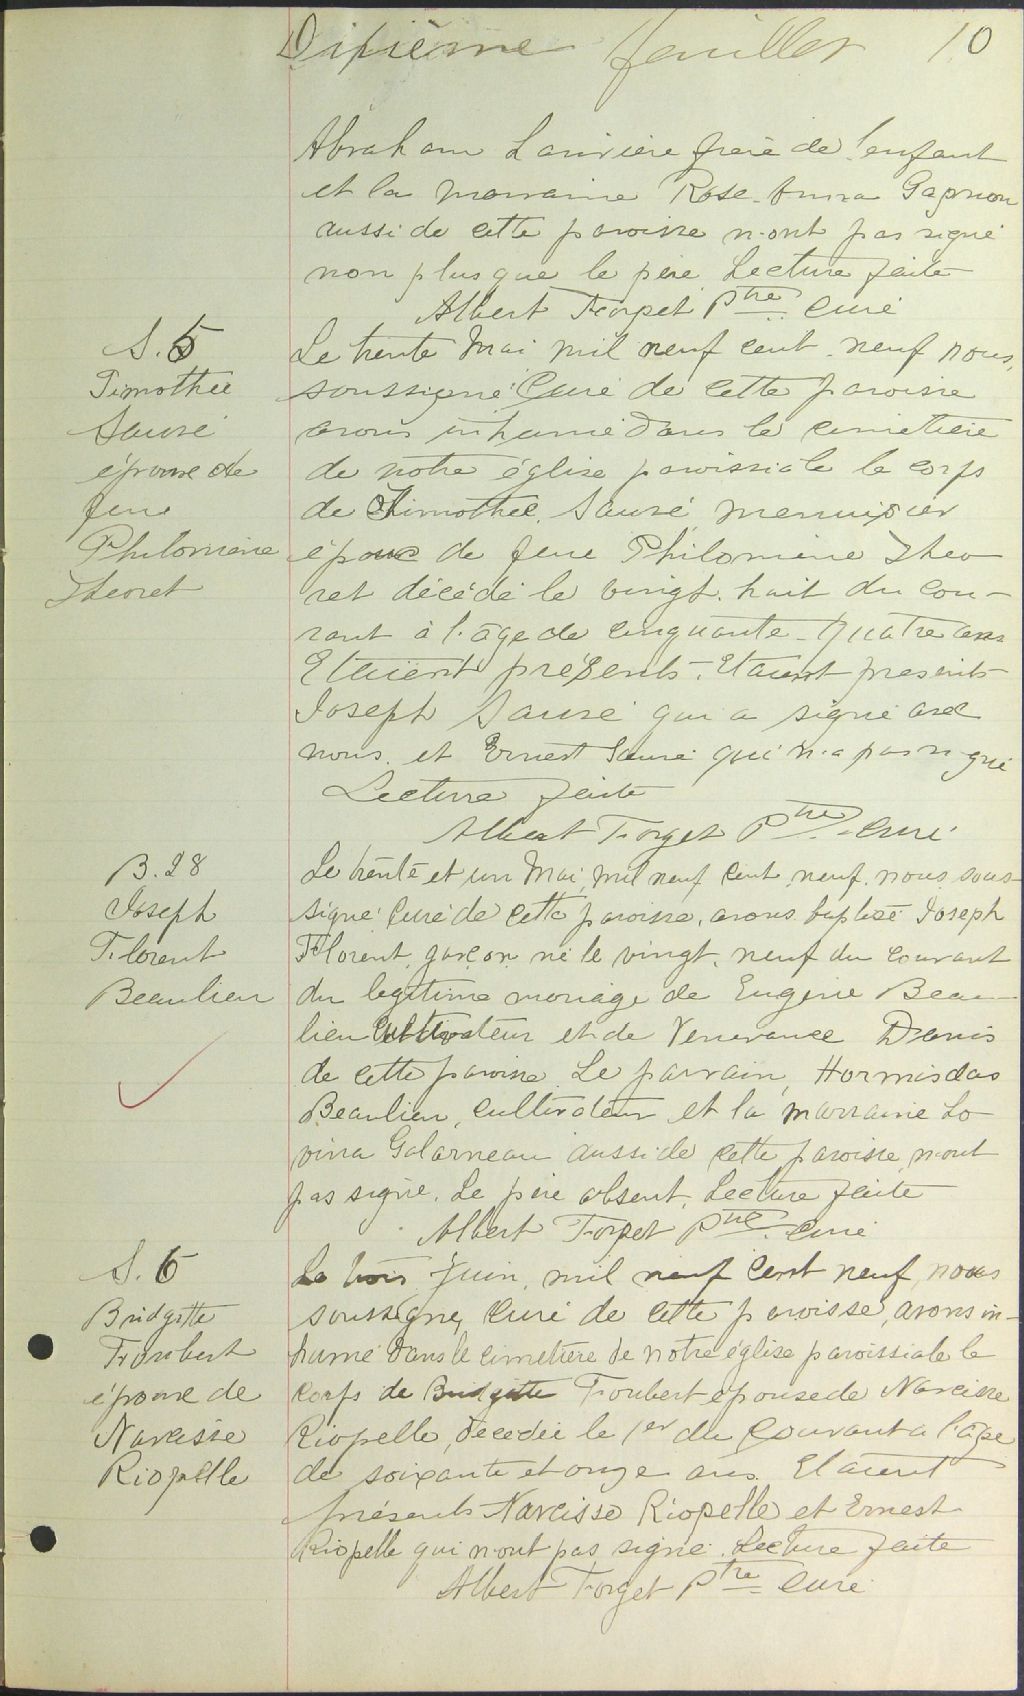 Dixième feuillet 10
Abraham Larivière frère de l'enfant
et la marraine Rose-Anna Gagnon
aussi de cette paroisse n'ont pas signé
non plus que le père Lecture faite
Albert Forget Ptre curé
S. 5
Timothée
Sauvé
époux de
feue
Philomène
Theoret
Le trente Mai mil neuf cent neuf nous,
soussigné Curé de cette paroisse
avons inhumé dans le cimetière
de notre église paroissiale le corps
de Thimothée Sauvé, menuisier
époux de feue Philomène Theo
ret décédé le vingt-huit du cou-
rant à l'âge de cinquante-quatre ans
Etaient présents. Etaient presents
Joseph Sauvé qui a signé avec
nous et Ernest Sauvé qui n'a pas signé
Lecture faite
Albert Forget Ptre curé
B. 28
Joseph
Florent
Beaulieu
Le trente et un Mai mil neuf cent neuf nous sous-
signé curé de cette paroisse, avons baptisé Joseph
Florent, garçon né le vingt-neuf du courant
du légitime mariage de Eugène Beau-
lieu Cultivateur et de Venerance Danis
de cette paroisse Le parrain, Hormisdas
Beaulieu, cultivateur et la marraine Lo
vina Galarneau aussi de cette paroisse n'ont
pas signé. Le père absent, Lecture faite
Albert Forget Ptre curé
S. 6
Bridgitte
Troubert
épouse de
Narcisse
Riopelle
Le trois Juin, mil neuf cent neuf, nous
soussigné, Curé de cette paroisse, avons in-
humé dans le cimetière de notre église paroissiale le
corps de Bridgitte Troubert épouse de Narcisse
Riopelle, décédée le 1er du Courant a l'âge
de soixante et onze ans. Etaient
présents Narcisse Riopelle et Ernest
Riopelle qui n'ont pas signé. Lecture faite
Albert Forget Ptre Curé